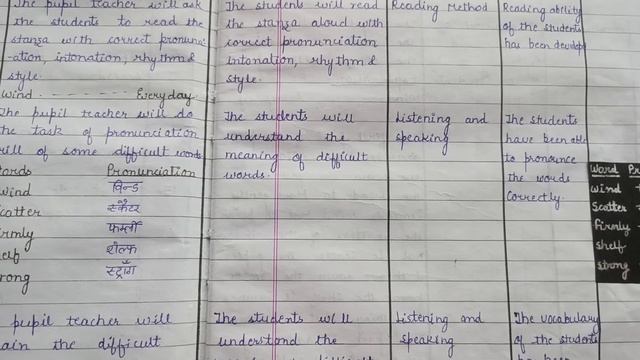 The pupil teacher will ask
the students to read the
stanza with correct pronunci
-ation, intonation, rhythm &
style.
Wind - - - - - - - Everyday.
The pupil teacher will do
the task of pronunciation
rill of some difficult words
ords Pronunciation
wind विन्ड
catter स्कैटर
irmly फर्म्ली
helf शेल्फ
rong स्ट्रॉंग
pupil teacher will
ain the difficult
The students will read
the stanza aloud with
correct pronunciation
intonation, rhythm &
style.
The students will
understand the
meaning of difficult
words.
The students will
understand the
Reading Method
Listening and
speaking
Listening and
speaking
Reading ability
of the students
has been develop
The students
have been able
to pronounce
the words
correctly.
The vocabulary
of the students
has been
Word Pr
wind
Scatter
firmly
shelf
strong